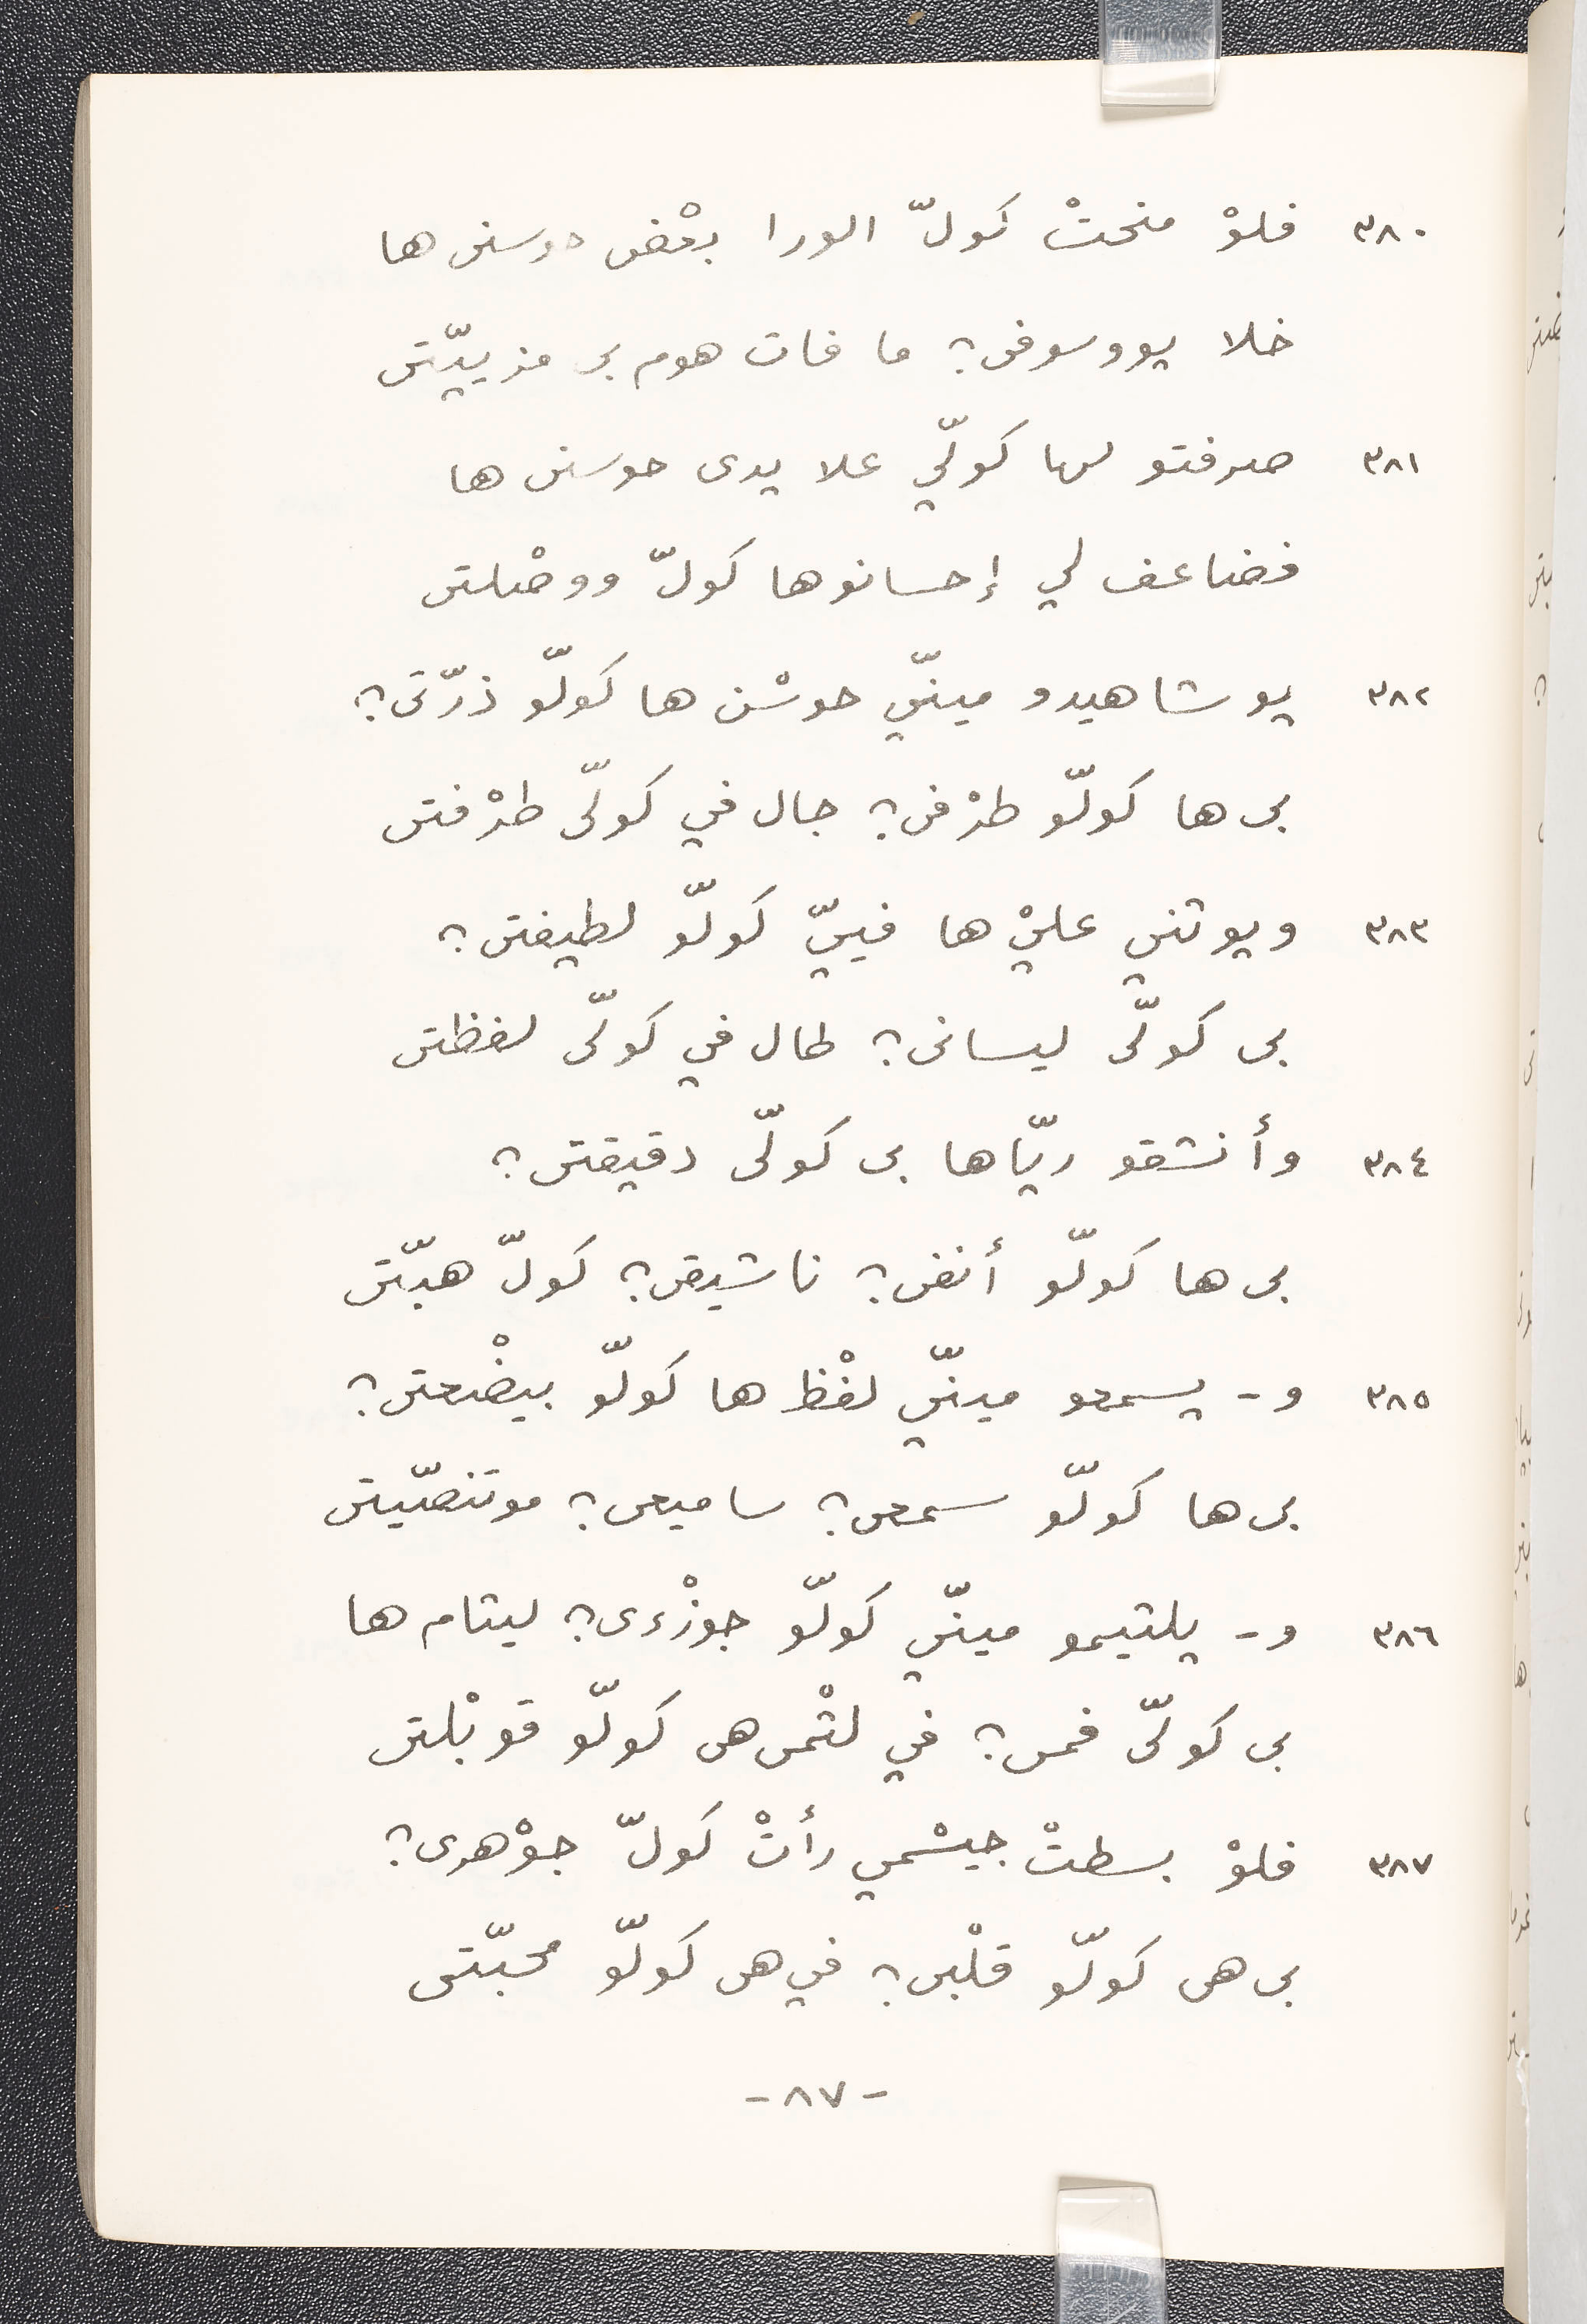 ٣٨٠ فلوْ منحتْ كولّ الورا بعْض حوسنى ها
خلا يووسوفى؟ ما فات هوم بى مزييّتى
٣٨١ صرفتو لها كولّي علا يدى حوسنى ها
فضاعف لي إحسانوها كولّ ووصْلتى
٣٨٢ يوشاهيدو مينّي حوسْن ها كولّو ذرّتى؟
بى ها كولّو طرْفى؟ جال في كولّى طرْفتى
٣٨٣ ويوثني عليْ ها فييّ كولّو لطيفتى؟
بى كولّى ليسانى؟ طال في كولّى لفظتى
٣٨٤ وأنشقو ريّاها بى كولّى دقيقتى؟
بى ها كولّو أنفى؟ ناشيقى؟ كولّ هبّتى
٣٨٥ و- يسمعو مينّي لفْظ ها كولّو بيضْعتى؟
بى ها كولّو سمعى؟ ساميعى؟ موتنصّيتى
٣٨٦ و- يلتيمو مينّي كولّو جوزْءى؟ ليتام ها
بى كولّى فمى؟ في لثْمى هى كولّو قوبْلتى
٣٨٧ فلوْ بسطتْ جيسْمي رأتْ كولّ جوْهرى؟
بى هى كولّو قلْبى؟ في هى كولّو محبّتى
- ٨٧ -